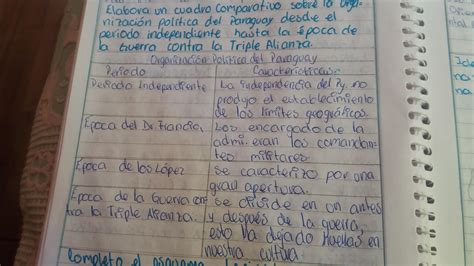 Elabora un cuadro comparativo sobre la orga-
nización política del Paraguay desde el
periodo independiente hasta la Época de
la Guerra contra la Triple Alianza.
Organización Política del Paraguay
Periodo Características
Periodo Independiente La independencia del Py. no
produjo el establecimiento
de los límites geográficos.
Época del Dr. Francia Los encargado de la
admi. eran los comandan-
tes militares.
Época de los López Se caracterizo por una
gran apertura.
Época de la Guerra con se divide en un antes
tra la Triple Alianza. y después de la guerra,
esto ha dejado Huellas en
nuestra cultura.
Completo el